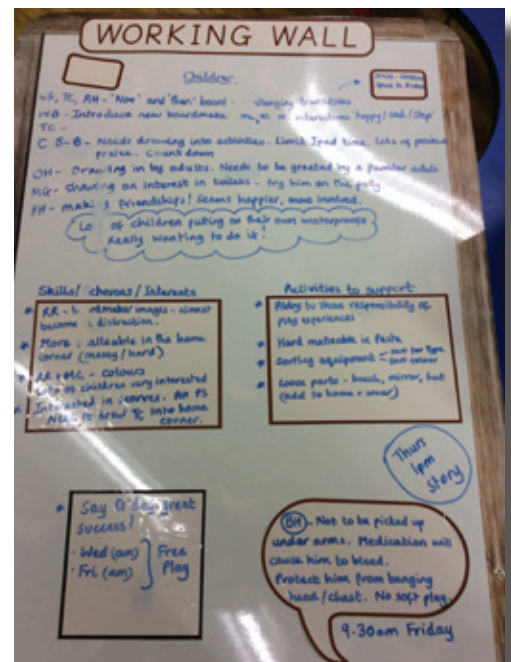 WORKING WALL
Children
TC, AH - 'Now' and 'Then' board - transitions
WB - Introduce new boardmaker images interactions 'happy/sad/stop'
TC -
C B-B - Needs drawing into activities. Limit Ipad time. Lots of positive
praise. Count down
OH - Drawing in by adults. Needs to be greeted by a familiar adult
MG - Showing an interest in toilets - try him on the potty
friendships! Seems happier, more involved.
of children putting on their own waterproofs
Really wanting to do it!
Skills/ /Interests
* RR - images - almost
become distraction.
* More in the home
corner (messy/hard)
* RR + MC - colours
Lots of children very interested
* Interested in AH PS
TC into home
corner.
Activities to support
* to share responsibility of
play experiences
* Hard ie Pasta
* Sorting equipment - Sort for Type
Sort colour
* Loose parts - brush, mirror, hat
(add to home corner)
Thurs
1pm
Story
* Say G'day great
success!
· Wed (am)
· Fri (am)
Free
Play
BH - Not to be picked up
under arms. Medication will
cause him to bleed.
Protect him from banging
head/chest. No soft play.
9.30am Friday